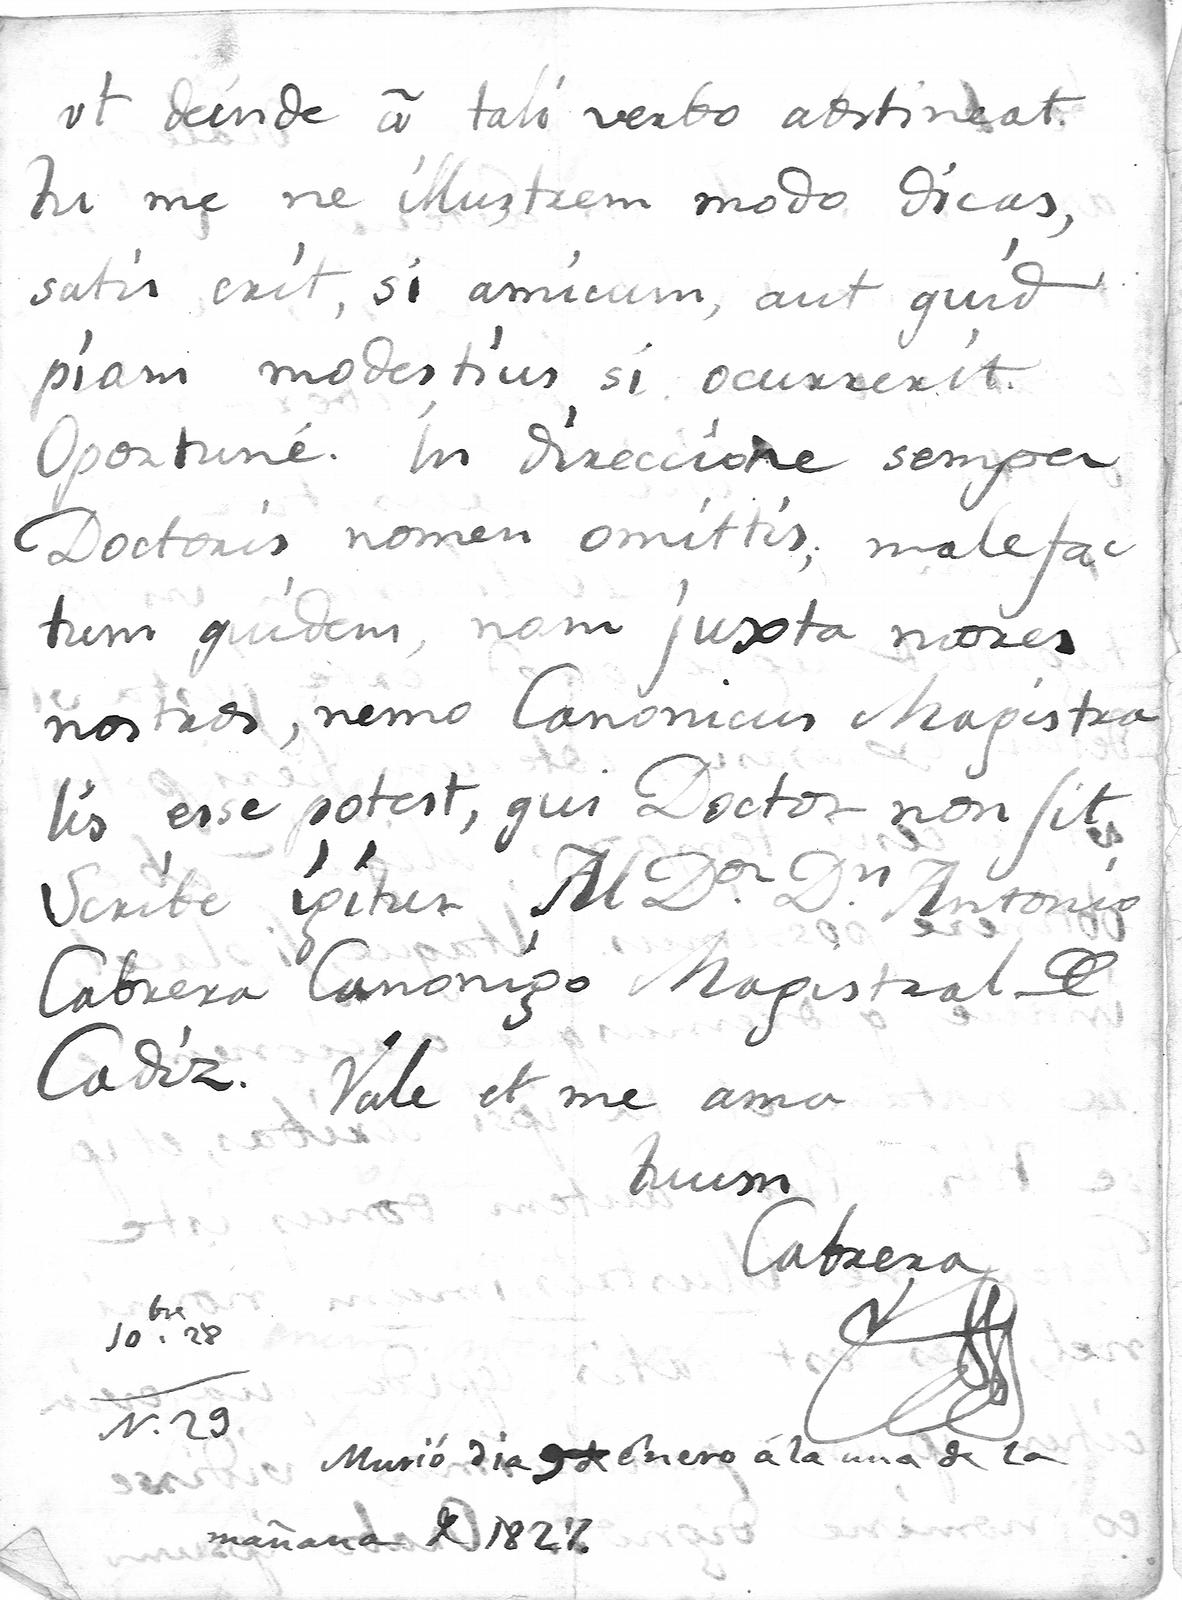 ut deinde à tali verbo abstineat.
Tu me ne illustrem modo dicas,
satis erit, si amicum, aut quid
piam modestius si ocurrerit.
Oportuné. In direccione semper
Doctoris nomen omittis, malefac
tum quidem, nam juxta mores
nostros, nemo Canonicus Magistra
lis esse potest, qui Doctor non sit.
Scribe igitur Al Dor. Dn. Antonio
Cabrera Canonigo Magistral de
Cadiz. Vale et me ama
tuum
Cabrera
10bre. 28
N. 29
Murió dia 9 de enero á la una de la
mañana de 1827.